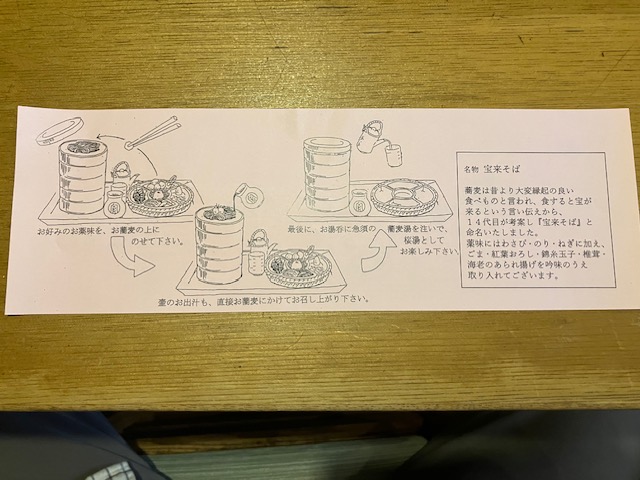 お好みのお薬味を、お蕎麦の上に
のせて下さい。
壷のお出汁も、直接お蕎麦にかけてお召し上がり下さい。
最後に、お湯呑に急須の蕎麦湯を注いで、
桜湯として
お楽しみ下さい。
名物 宝来そば
蕎麦は昔より大変縁起の良い
食べものと言われ、食すると宝が
来るという言い伝えから、
14代目が考案し『宝来そば』と
命名いたしました。
薬味にはわさび・のり・ねぎに加え、
ごま・紅葉おろし・錦糸玉子・椎茸・
海老のあられ揚げを吟味のうえ
取り入れてございます。